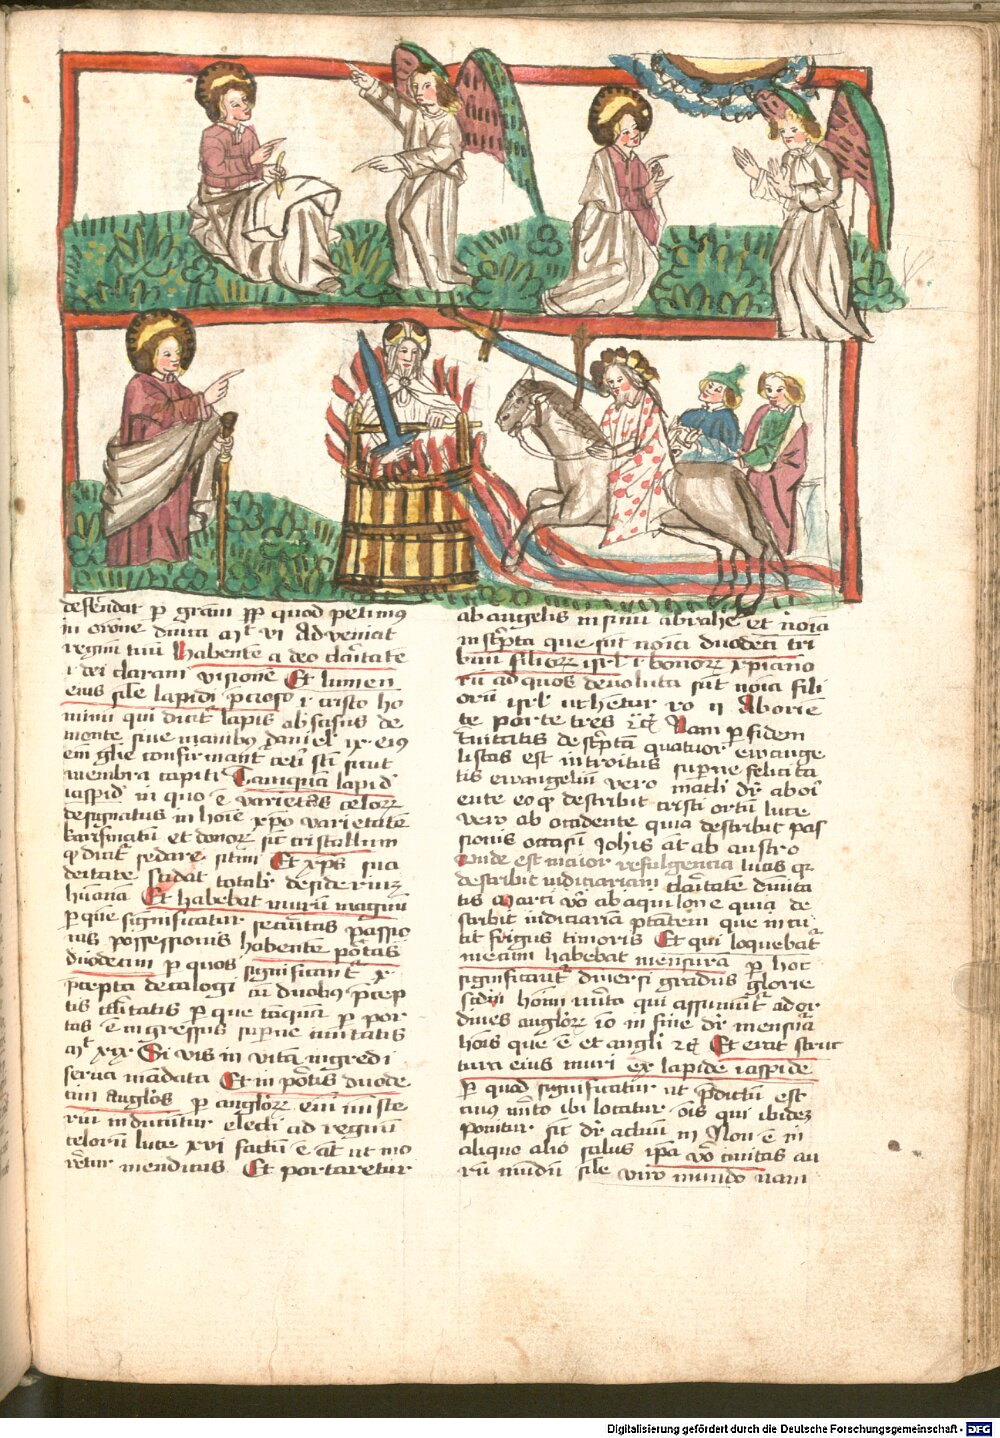 defendat per gram spm quod petimus
in orone dnica mt vi Adveniat
regnum tuum habentem a deo claritate
i dei claram visionem Et lumen
eius sile lapidi precioso i cristo ho
mini qui dicit lapis abscisus de
monte sine manibus daniel
em glie confirmant celi sti sicut
membra capiti Tamquam lapid
iaspid in quo e varietas celorz
designatus in hoie xpo varietatem
karismatum et donorz sic cristallum
qd dicit sedare sitim Et xps sua
deitate sedat totalr desiderium
humana Et habebat murum magnum
per que significatur securitas
possessionis habentem portas
duodecim per quos significant
precepta decalogi cu duobus precep
tis caritatis per que tamquam per por
tas e ingressus superne civitatis
mt xix Si vis in vitam ingredi
serva mandata Et in portis duode
cim anglos per anglorz eni miste
rium inducuntur electi ad regnum
celorum luce xvi factum e at ut mo
reretur mendicus Et portaretur
ab angelis in sinum abrahe et noia
inscripta que sut noia duodecim tri
buum filiorz isrl i bonorz xpiano
rum ad quos devoluta sut noia fili
orum isrl ut hetur ro ii Ab orien
te porte tres Nam per fidem
trinitatis descripta quatuor ewange
listas est introitus superne felicita
tis ewangelium vero mathi dr ab ori
ente eo qd describit cristi ortum luce
vero ab occidente quia describit pas
sionis occasum Johis at ab austro
unde est maior refulgencia lucis qr
describit claritatem divinita
tis Marci vo ab aquilone quia de
scribit iudiciariam potatem que incu
tit frigus timoris Et qui loquebat
mecum habebat mensuram per hoc
significant diversi gradus glorie
hoim qui assumuntur ad or
dines anglorz io in fine dr mensura
hois que e et angli Et erat struc
tura eius muri ex lapide iaspide
per quod significatur ut predictum est
ibi locatur ois qui ibidem
ponitur sic dr actuum iiii Non e in
aliquo alio salus ipa vo civitas au
rum mundum sile vitro mundo nam
Digitalisierung gefördert durch die Deutsche Forschungsgemeinschaft - DFG